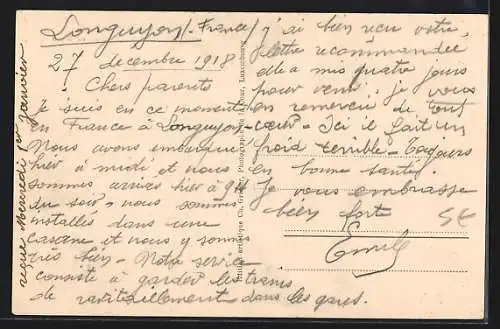 Longuyon (France)
27 décembre 1918
Chers parents
Je suis en ce moment
en France à Longuyon.
Nous avons embarqué
hier à midi et nous
sommes arrivés hier à 9h
du soir - nous sommes
installés dans une
caserne et nous y sommes
très bien - Notre service
consiste à garder les trains
de ravitaillement dans les gares.
j'ai bien reçu votre
lettre recommandée
elle a mis quatre jours
pour venir. je vous
en remercie de tout
cœur - Ici il fait un
froid terrible - Toujours
en bonne santé.
Je vous embrasse
bien fort
Emile
reçue Mercredi 1er Janvier
Luxembourg